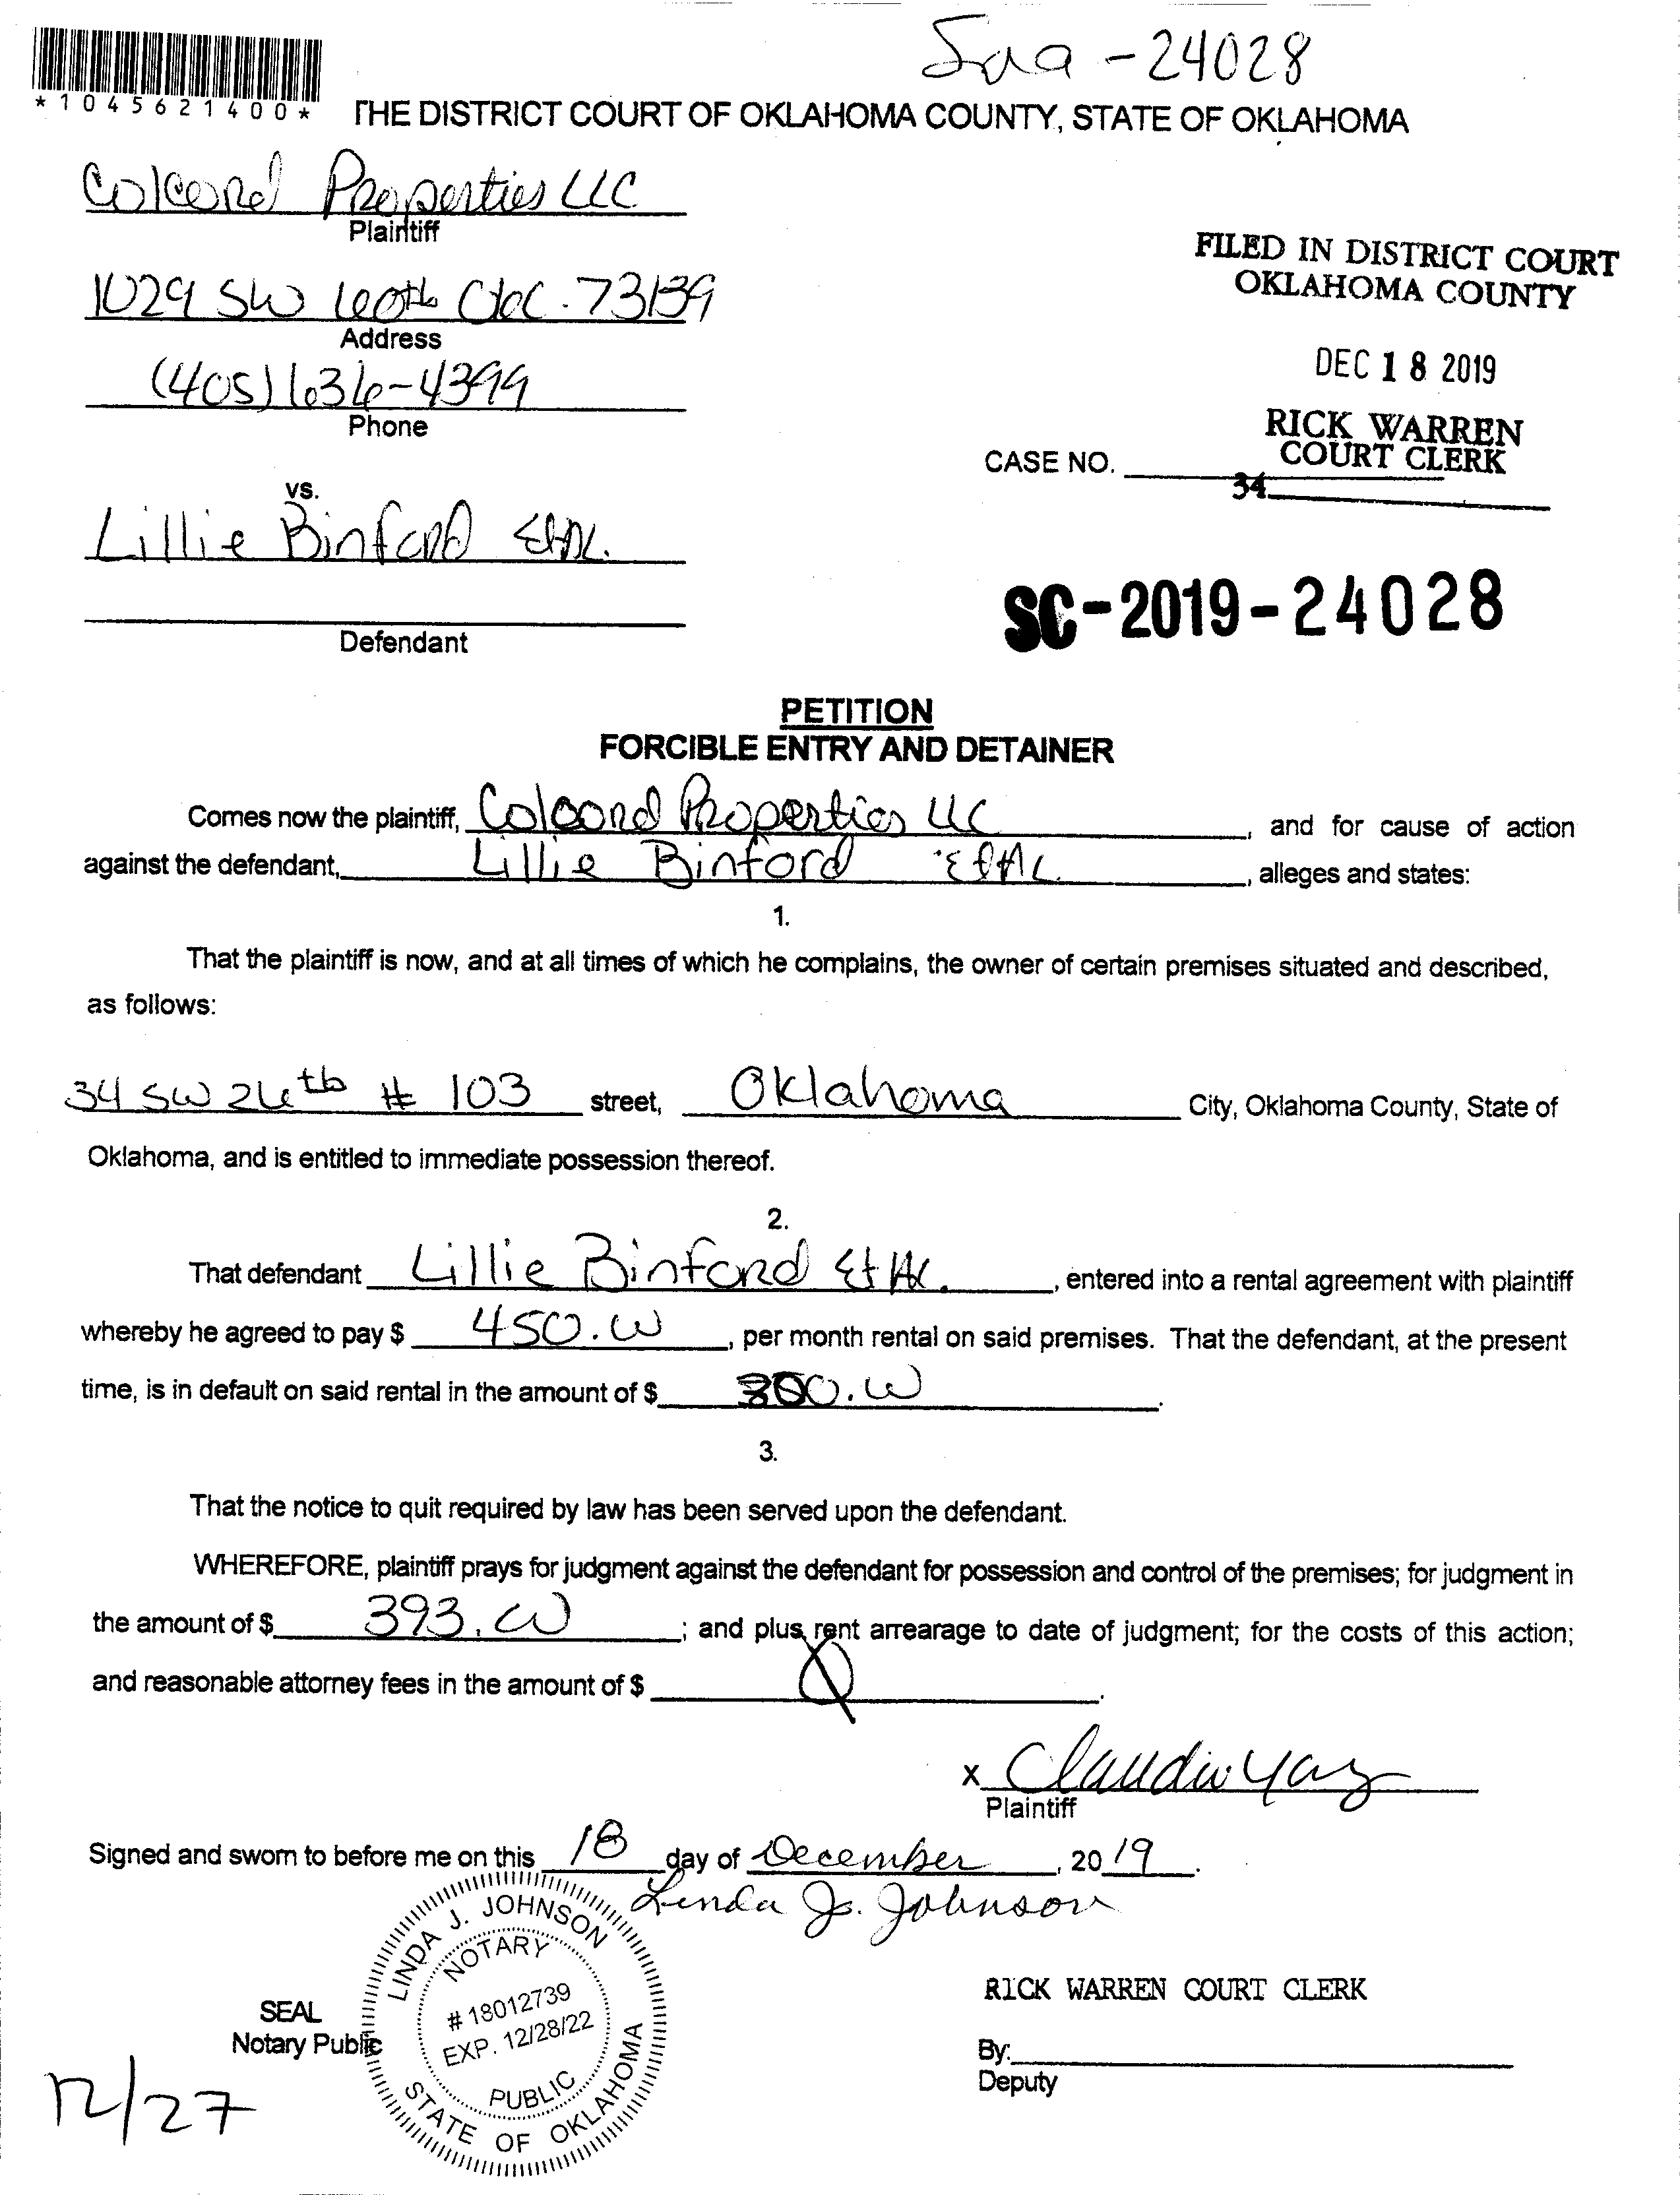 - 24028
*1045621400*
THE DISTRICT COURT OF OKLAHOMA COUNTY, STATE OF OKLAHOMA
Colcord Properties LLC
Plaintiff
1029 SW 100th OKC. 73139
Address
(405) 636-4399
Phone
FILED IN DISTRICT COURT
OKLAHOMA COUNTY
DEC 18 2019
RICK WARREN
COURT CLERK
CASE NO.
34
vs.
Lillie Binford Et AL.
Defendant
SC-2019-24028
PETITION
FORCIBLE ENTRY AND DETAINER
Comes now the plaintiff, Colcord Properties LLC, and for cause of action
against the defendant, Lillie Binford Et AL., alleges and states:
1.
That the plaintiff is now, and at all times of which he complains, the owner of certain premises situated and described,
as follows:
34 SW 26th # 103 street, Oklahoma City, Oklahoma County, State of
Oklahoma, and is entitled to immediate possession thereof.
2.
That defendant Lillie Binford Et Al., entered into a rental agreement with plaintiff
whereby he agreed to pay $ 450.00, per month rental on said premises. That the defendant, at the present
time, is in default on said rental in the amount of $ .00.
3.
That the notice to quit required by law has been served upon the defendant.
WHEREFORE, plaintiff prays for judgment against the defendant for possession and control of the premises; for judgment in
the amount of $ 393.00; and plus rent arrearage to date of judgment; for the costs of this action;
and reasonable attorney fees in the amount of $ 0.
x Claudia
Plaintiff
Signed and sworn to before me on this 18 day of December, 2019.
Linda J. Johnson
LINDA J. JOHNSON
NOTARY
# 18012739
EXP. 12/28/22
PUBLIC
STATE OF OKLAHOMA
SEAL
Notary Public
RICK WARREN COURT CLERK
By:
Deputy
12/27